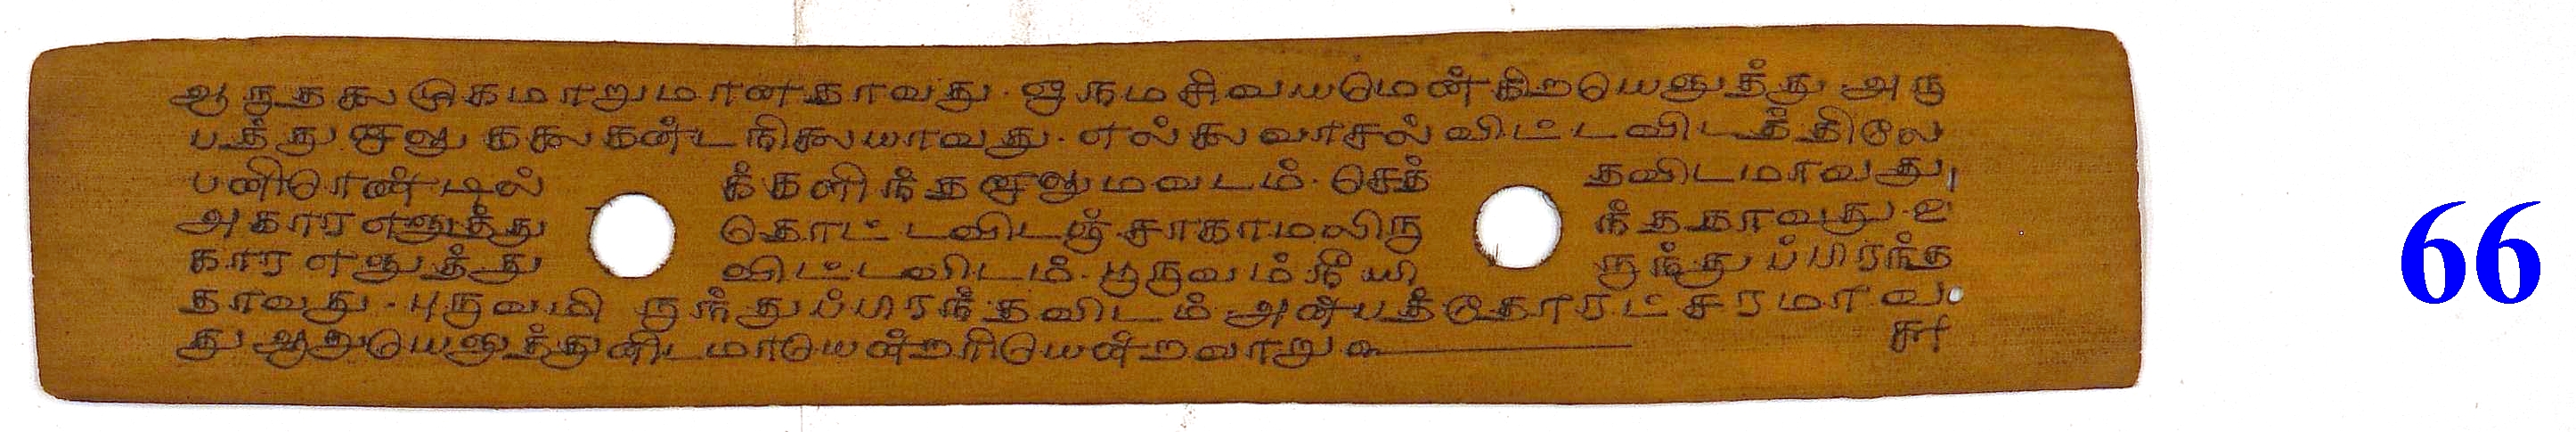 ஆருதலமுகமாறுமானதாவது. ஐநமசிவயமென்கிறயெளுத்து. அரு
பத்து ளுகலை கண்டநிலையாவது. எல்லைவாசல்விட்டவிடத்திலே
பனிரெண்டில் க்களிந்த மவடம். செத் தவிடமாவது
அகாரஎளுத்து தொட்டவிடஞ்சாகாமலிரு ந்ததாவது. உ
கார எளுத்து விட்டவிடம். பூருவம்நீயி ருந்துப்பிரந்த
தாவது. புருவமி ருந்துப்பிரந்தவிடம் அன்பத்தோரட்சரமாவ
து ஆறுயெளுத்துனிடமாயென்றரியென்றவாறு
66